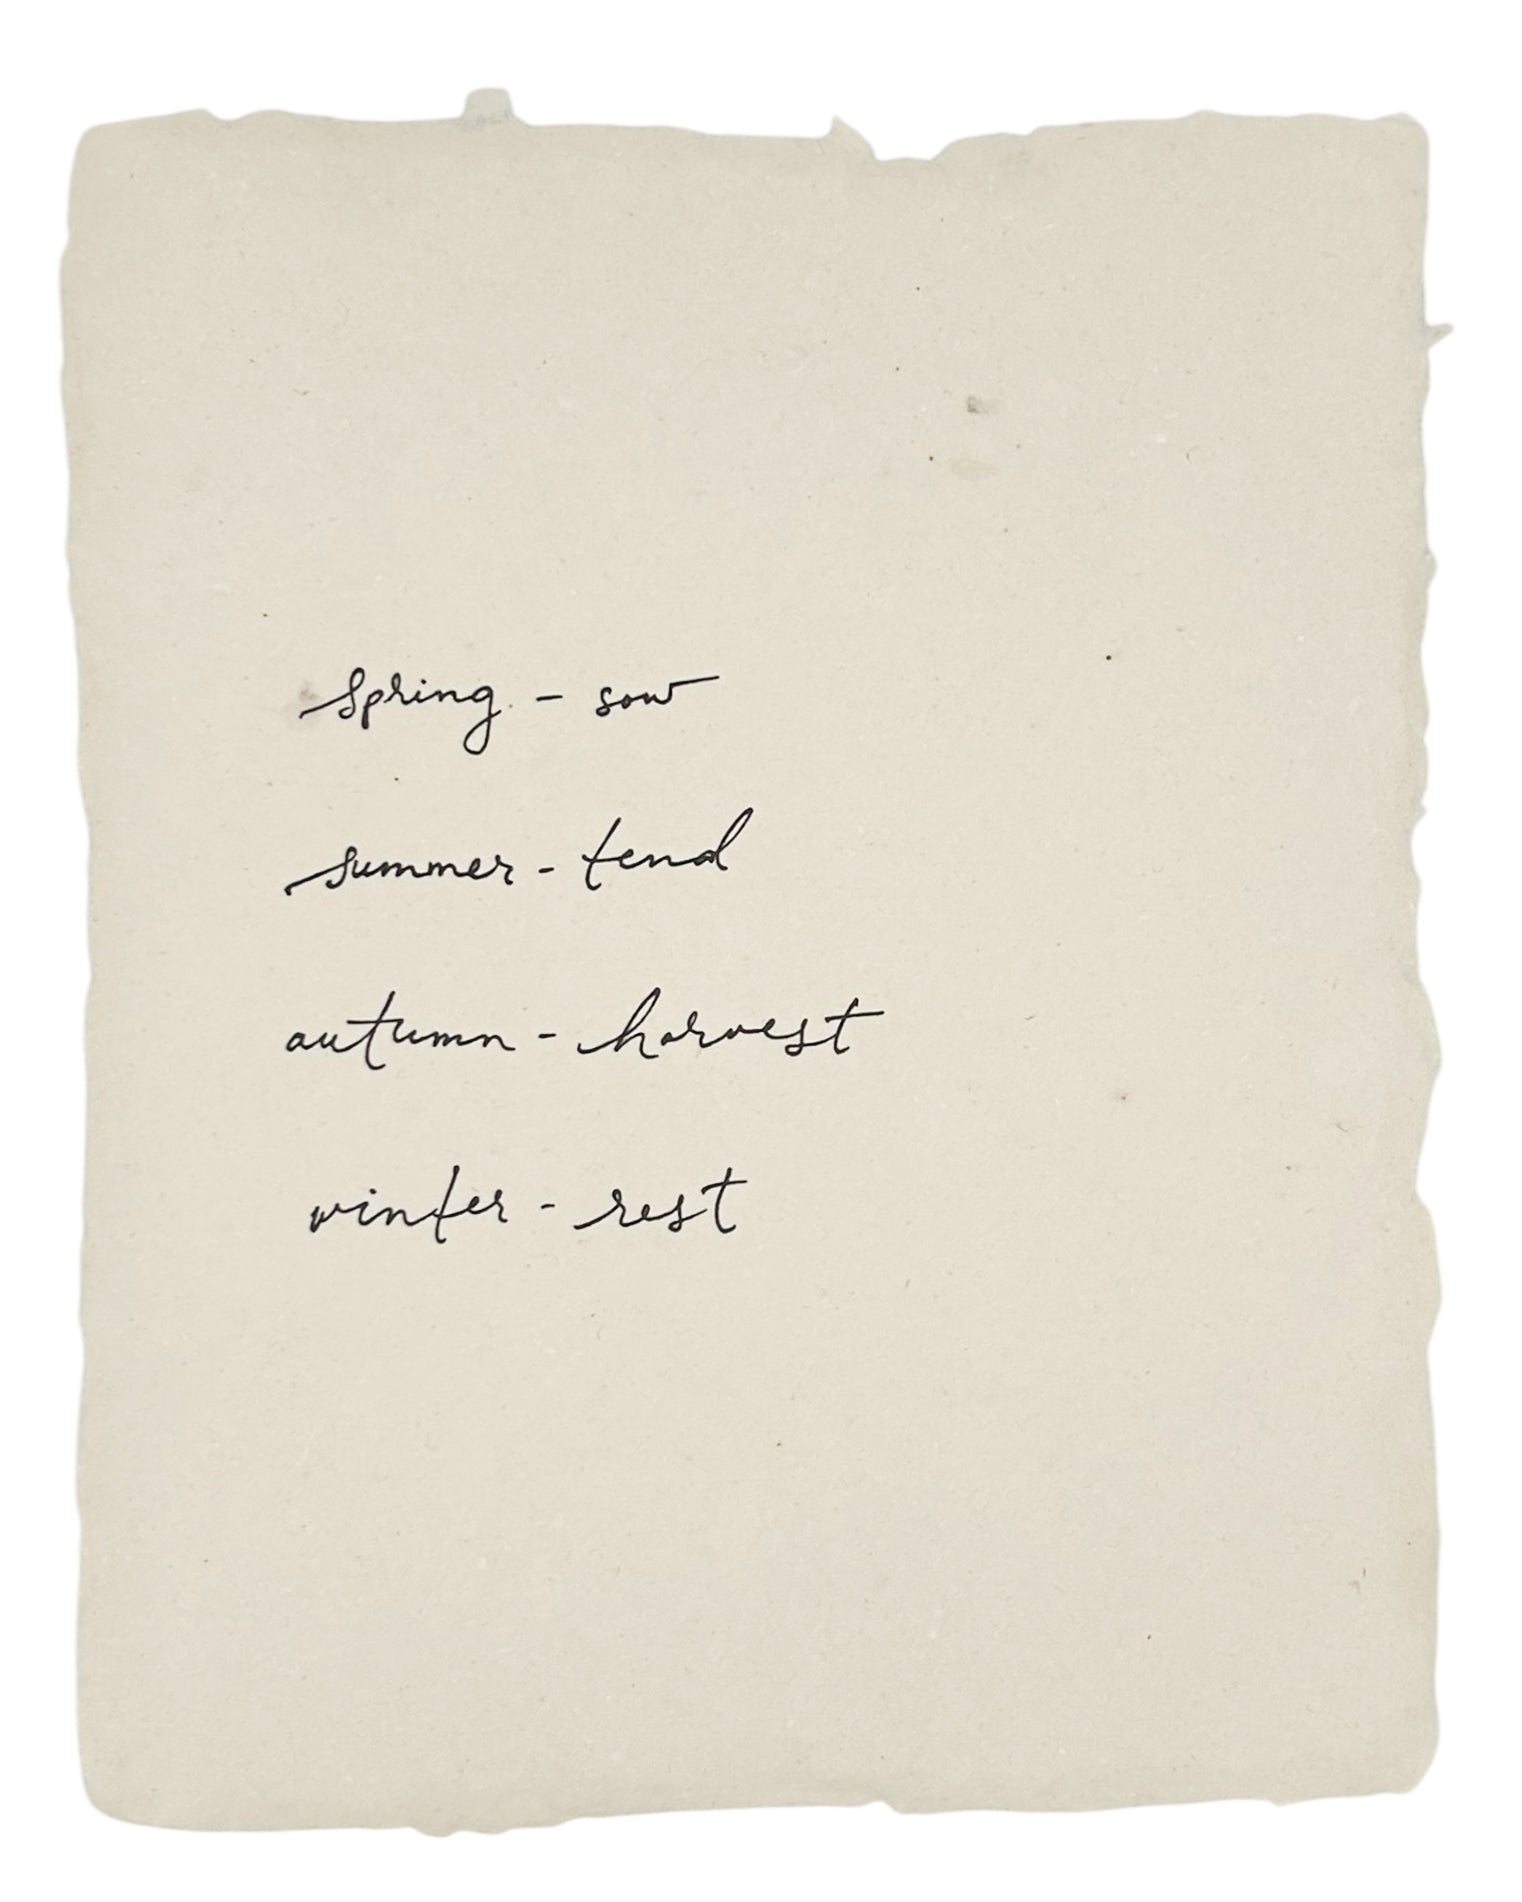 spring - sow
summer - tend
autumn - harvest
winter - rest